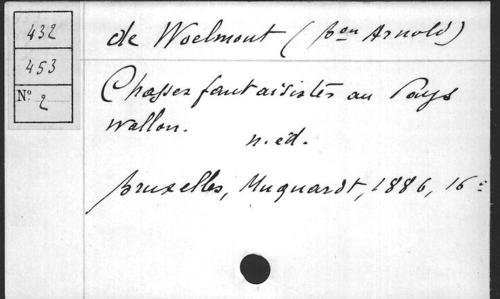 432
453
N° 2
de Woelmont (Bon Arnold)
Chasses fantaisistes au Pays
wallon.
n. éd.
Bruxelles, Muquardt, 1886, 16°